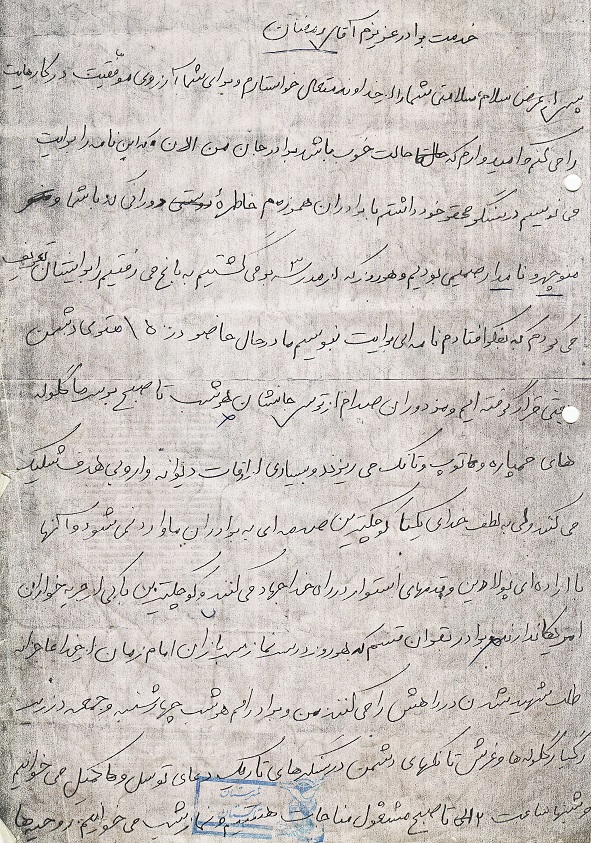 خدمت برادر عزیزم آقای رمضان
پس از عرض سلام، سلامتی شما را از خداوند متعال خواستارم و برای شما آرزوی موفقیت در کارهایت
را می کنم و امیدوارم که حالت خوب باشد برادر جان من الان که این نامه را برایت
می نویسم در سنگر محقر خود داشتم با برادران همرزمم خاطره دورانی که با شما و
منوچهر و نامدار صمیمی بودیم و هر روز که از مدرسه بر می گشتیم به باغ می رفتیم را برایشان تعریف
می کردم که بفکر افتادم نامه ای برایت بنویسم ما در حال حاضر در ۱۵۰ متری دشمن
بعثی قرار گرفته ایم و مزدوران صدام از ترس جانشان هر شب تا صبح بر سر ما گلوله
های خمپاره و توپ و تانک می ریزند و بسیاری از اوقات دیوانه وار و بی هدف شلیک
می کنند ولی به لطف خدای یکتا کوچکترین صدمه ای به برادران ما وارد نمی شود و آنها
با اراده ای پولادین و قدمهای استوار در راه خدا جهاد می کنند و کوچکترین باکی از جیره خواران
امریکا ندارند برادر بقرآن قسم که هر روز در سر نماز سربازان امام زمان از خدا عاجزانه
طلب شهید شدن در راهش را می کنند من و برادرانم هر شب چهارشنبه و جمعه در زیر
رگبار گلوله ها و غرش تانکهای دشمن در سنگرهای تاریک دعای توسل و کمیل می خوانیم
و شبها ساعت ۲ الی تا صبح مشغول مناجات هستیم و نماز شب می خوانیم روحیه ها